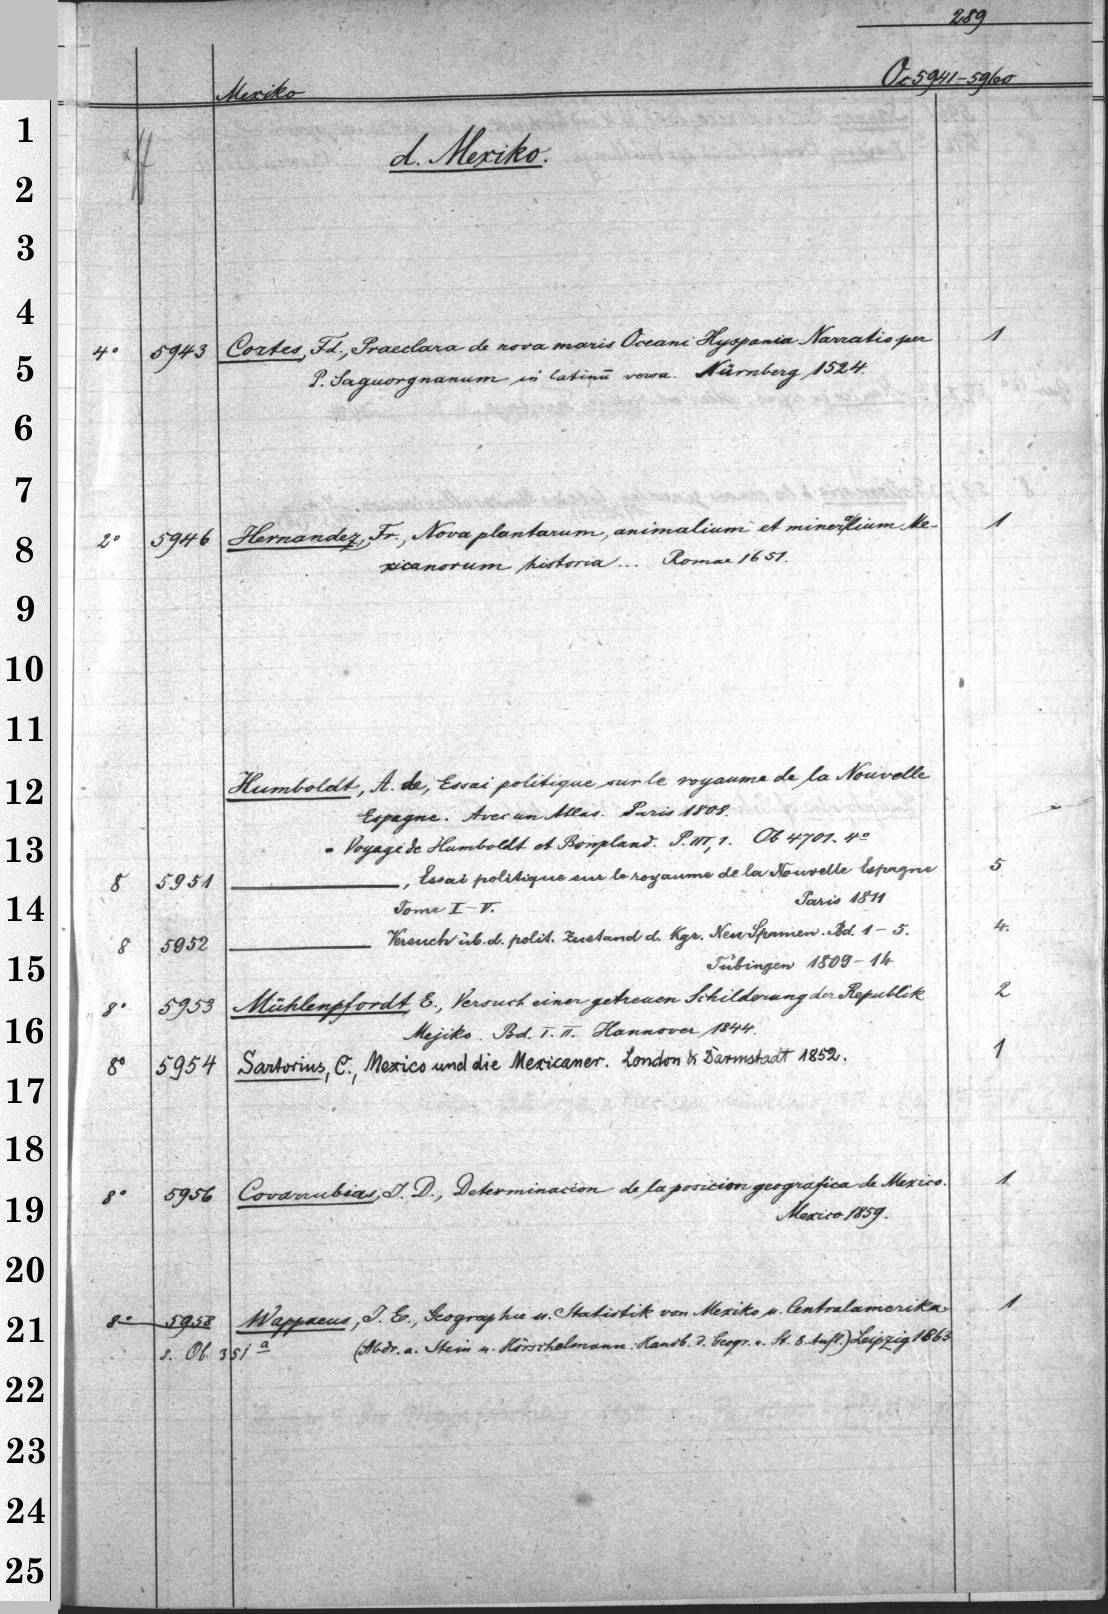 289
Mexiko
Oc 5941-5960
1
d. Mexiko.
2
3
4
4° 5943 Cortes, Fd., Praeclara de nova maris Oceani Hyspania Narratio per 1
5
P. Saguorgnanum in latinū versa. Nürnberg 1524.
6
7
2° 5946 Hernandez, Fr., Nova plantarum, animalium et mineralium Me- 1
8
xicanorum historia... Romae 1651.
9
10
11
12
Humboldt, A. de, Essai politique sur le royaume de la Nouvelle
Espagne. Avec un Atlas. Paris 1808.
13
= Voyage de Humboldt et Bonpland. P. III, 1. Ob 4701. 4°
8 5951 ———, Essai politique sur le royaume de la Nouvelle Espagne 5
14
Tome I-V. Paris 1811
8 5952 ——— Versuch üb. d. polit. Zustand d. Kgr. Neu Spanien. Bd. 1-5. 4.
15
Tübingen 1809-14
8° 5953 Mühlenpfordt, E., Versuch einer getreuen Schilderung der Republik 2
16
Mejiko. Bd. I. II. Hannover, 1844.
8° 5954 Sartorius, C., Mexico und die Mexicaner. London & Darmstadt 1852. 1
17
18
8° 5956 Covarrubias, J. D., Determinacion de la posicion geografica de Mexico. 1
19
Mexico 1859.
20
8° 5958 Wappaeus, J. E., Geographie u. Statistik von Mexiko u. Centralamerika 1
21
s. Ob. 351 a (Abdr. a. Stein u. Hörschelmann. Handb. d. Geogr. u. St. 8. Aufl.) Leipzig 1863
22
23
24
25